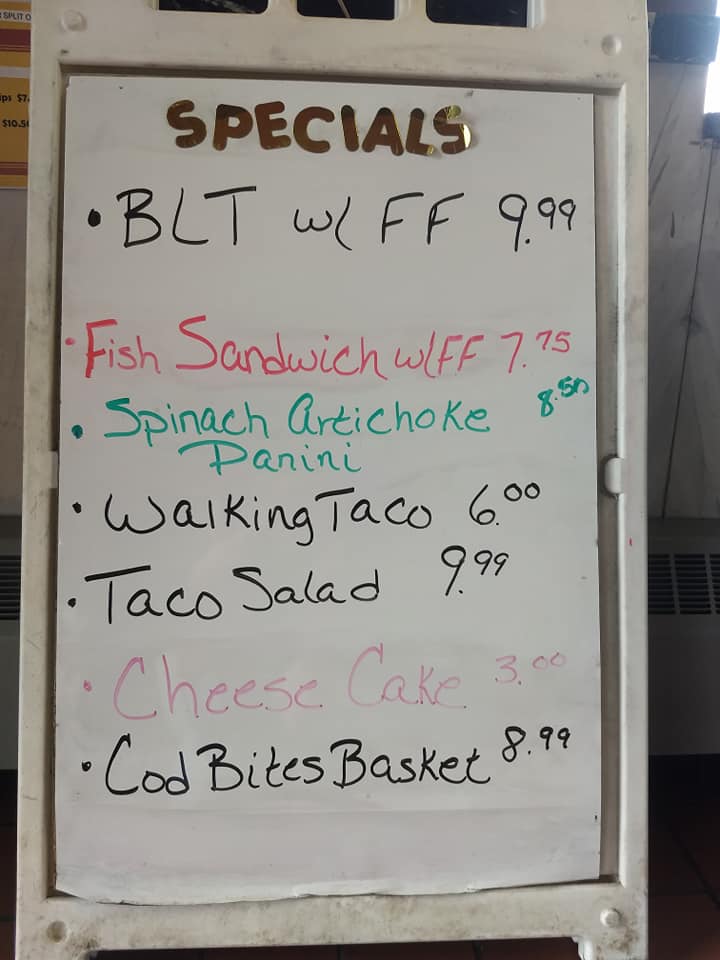 SPLIT O
ips $7.
$10.5
SPECIALS
• BLT w/ FF 9.99
• Fish Sandwich w/FF 7.75
• Spinach Artichoke 8.50
Panini
• Walking Taco 6.00
• Taco Salad 9.99
• Cheese Cake 3.00
• Cod Bites Basket 8.99